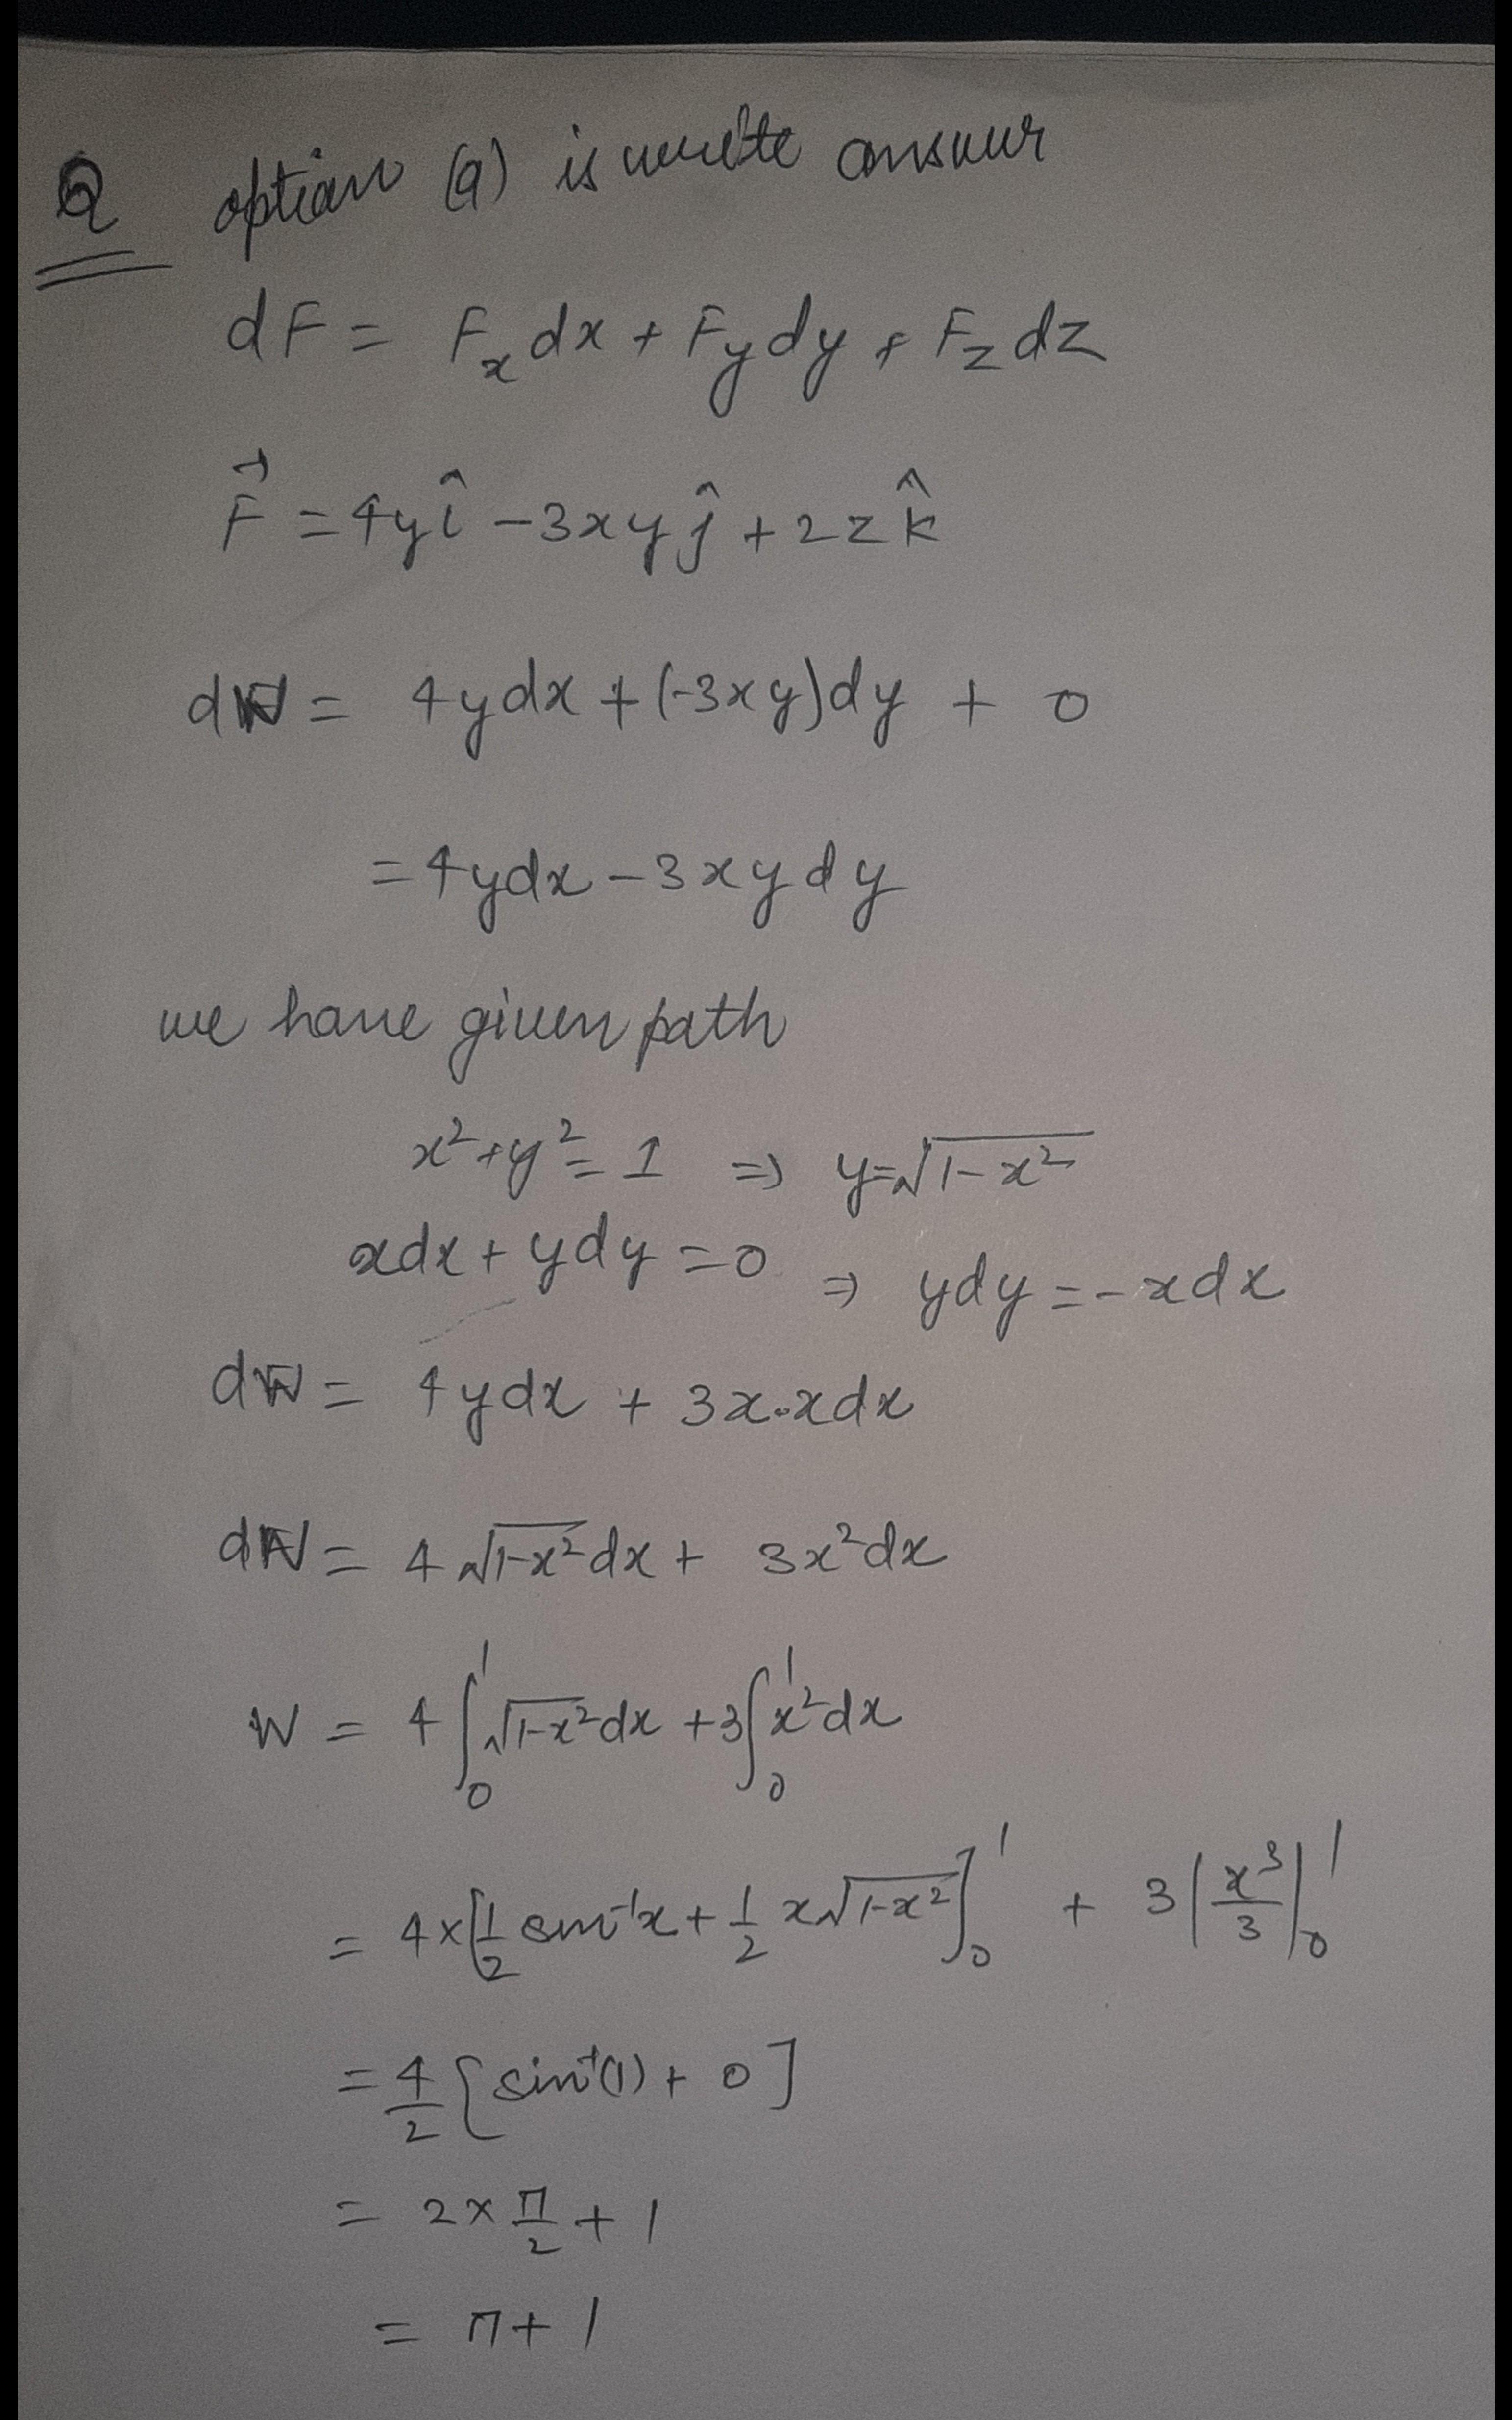 Q option (a) is write answer
dF = F_x dx + F_y dy + F_z dz
F⃗ = 4yî - 3xyĵ + 2zk̂
dW = 4ydx + (-3xy)dy + 0
= 4ydx - 3xydy
we have given path
x² + y² = 1 ⇒ y = √(1-x²)
xdx + ydy = 0 ⇒ ydy = -xdx
dW = 4ydx + 3x.xdx
dW = 4√(1-x²)dx + 3x²dx
W = 4∫₀¹√(1-x²)dx + 3∫₀¹x²dx
= 4×[1/2 sin⁻¹x + 1/2 x√(1-x²)]₀¹ + 3|x³/3|₀¹
= 4/2 [sin⁻¹(1) + 0]
= 2 × π/2 + 1
= π + 1